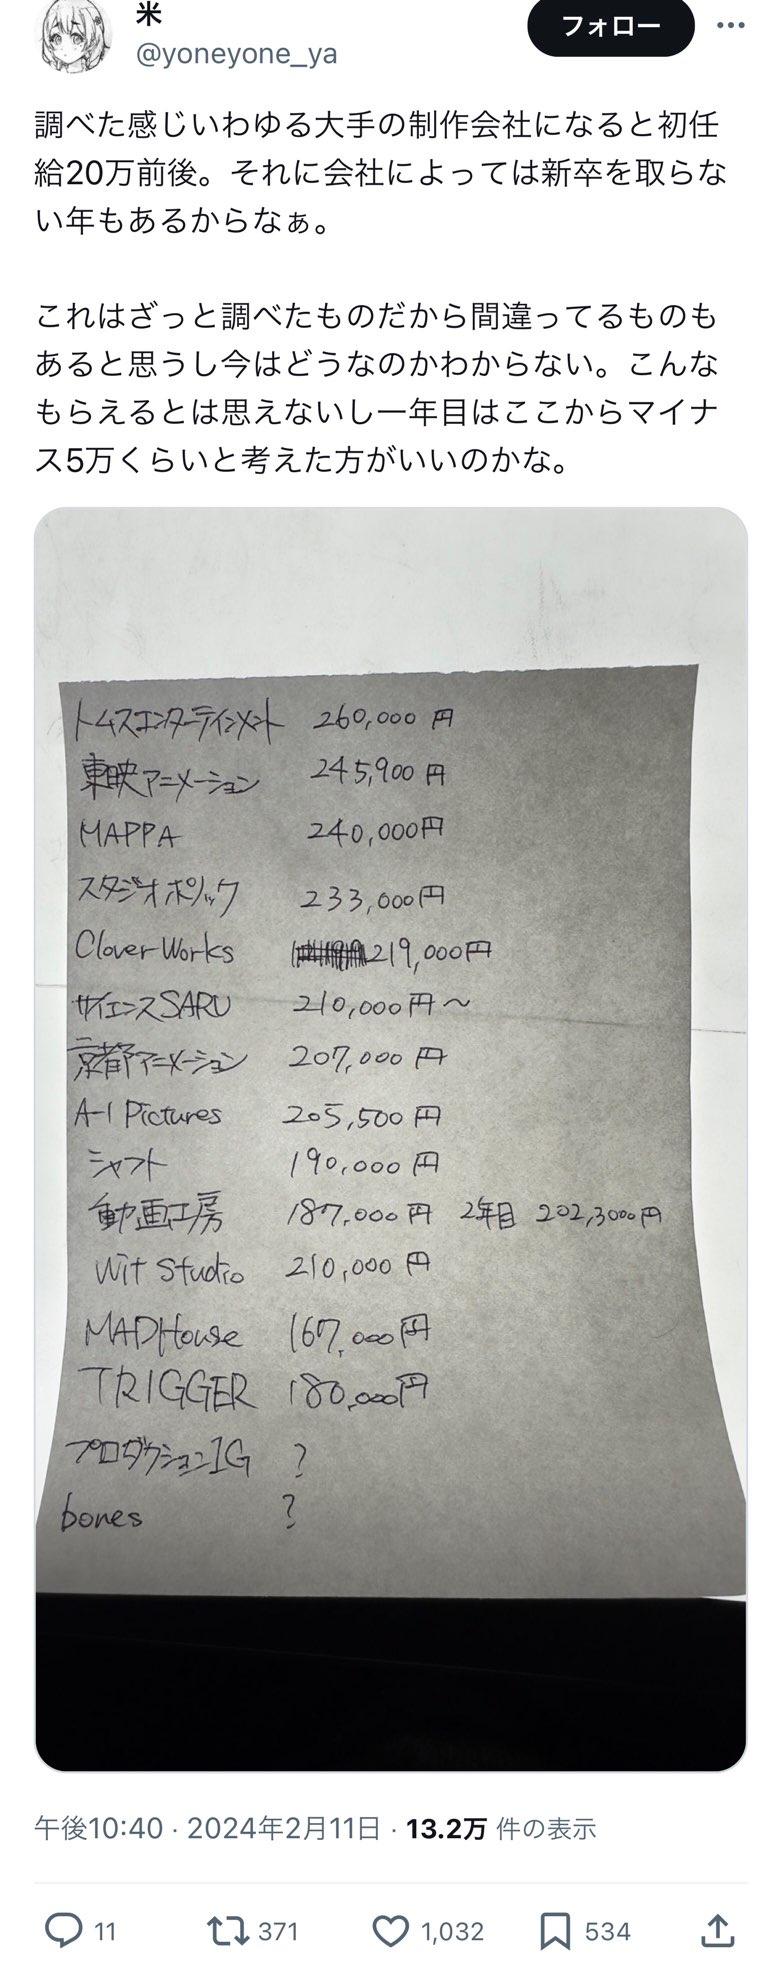 米
@yoneyone_ya
フォロー
調べた感じいわゆる大手の制作会社になると初任
給20万前後。それに会社によっては新卒を取らな
い年もあるからなぁ。
これはざっと調べたものだから間違ってるものも
あると思うし今はどうなのかわからない。こんな
もらえるとは思えないし一年目はここからマイナ
ス5万くらいと考えた方がいいのかな。
トムスエンターテインメント 260,000円
東映アニメーション 245,900円
MAPPA 240,000円
スタジオポノック 233,000円
CloverWorks 219,000円
サイエンスSARU 210,000円～
京都アニメーション 207,000円
A-1 Pictures 205,500円
シャフト 190,000円
動画工房 187,000円 2年目 202,3000円
Wit Studio 210,000円
MADHouse 167,000円
TRIGGER 180,000円
プロダクションIG ?
bones ?
午後10:40 · 2024年2月11日 · 13.2万 件の表示
11 371 1,032 534